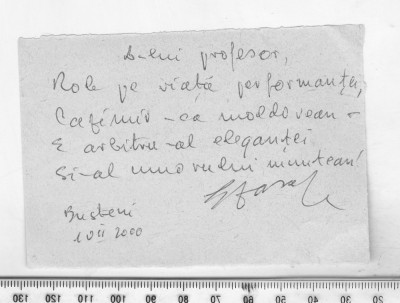 D-lui profesor,
Role pe viață performanței,
Cafimir - ca moldovean -
E arbitru-al eleganței
Și-al umorului muntean!
Bușteni
1 VII 2000
130 120 110 100 90 80 70 60 50 40 30 20